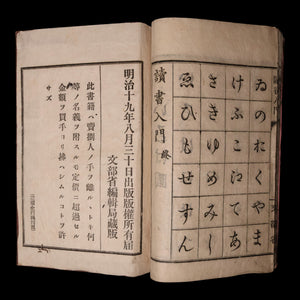 ゐのおくやま
けふこえてあ
さきゆめみし
ゑひもせすん
讀書入門 終
明治十九年八月三十日出版版權所有屆
文部省編輯局藏版
此書籍ハ賣捌人ノ手ヲ離ルヽトキ何
等ノ名義ヲ附スルモ定價ニ超過セル
金額ヲ買手ヨリ拂ハシムルコトヲ許
サズ